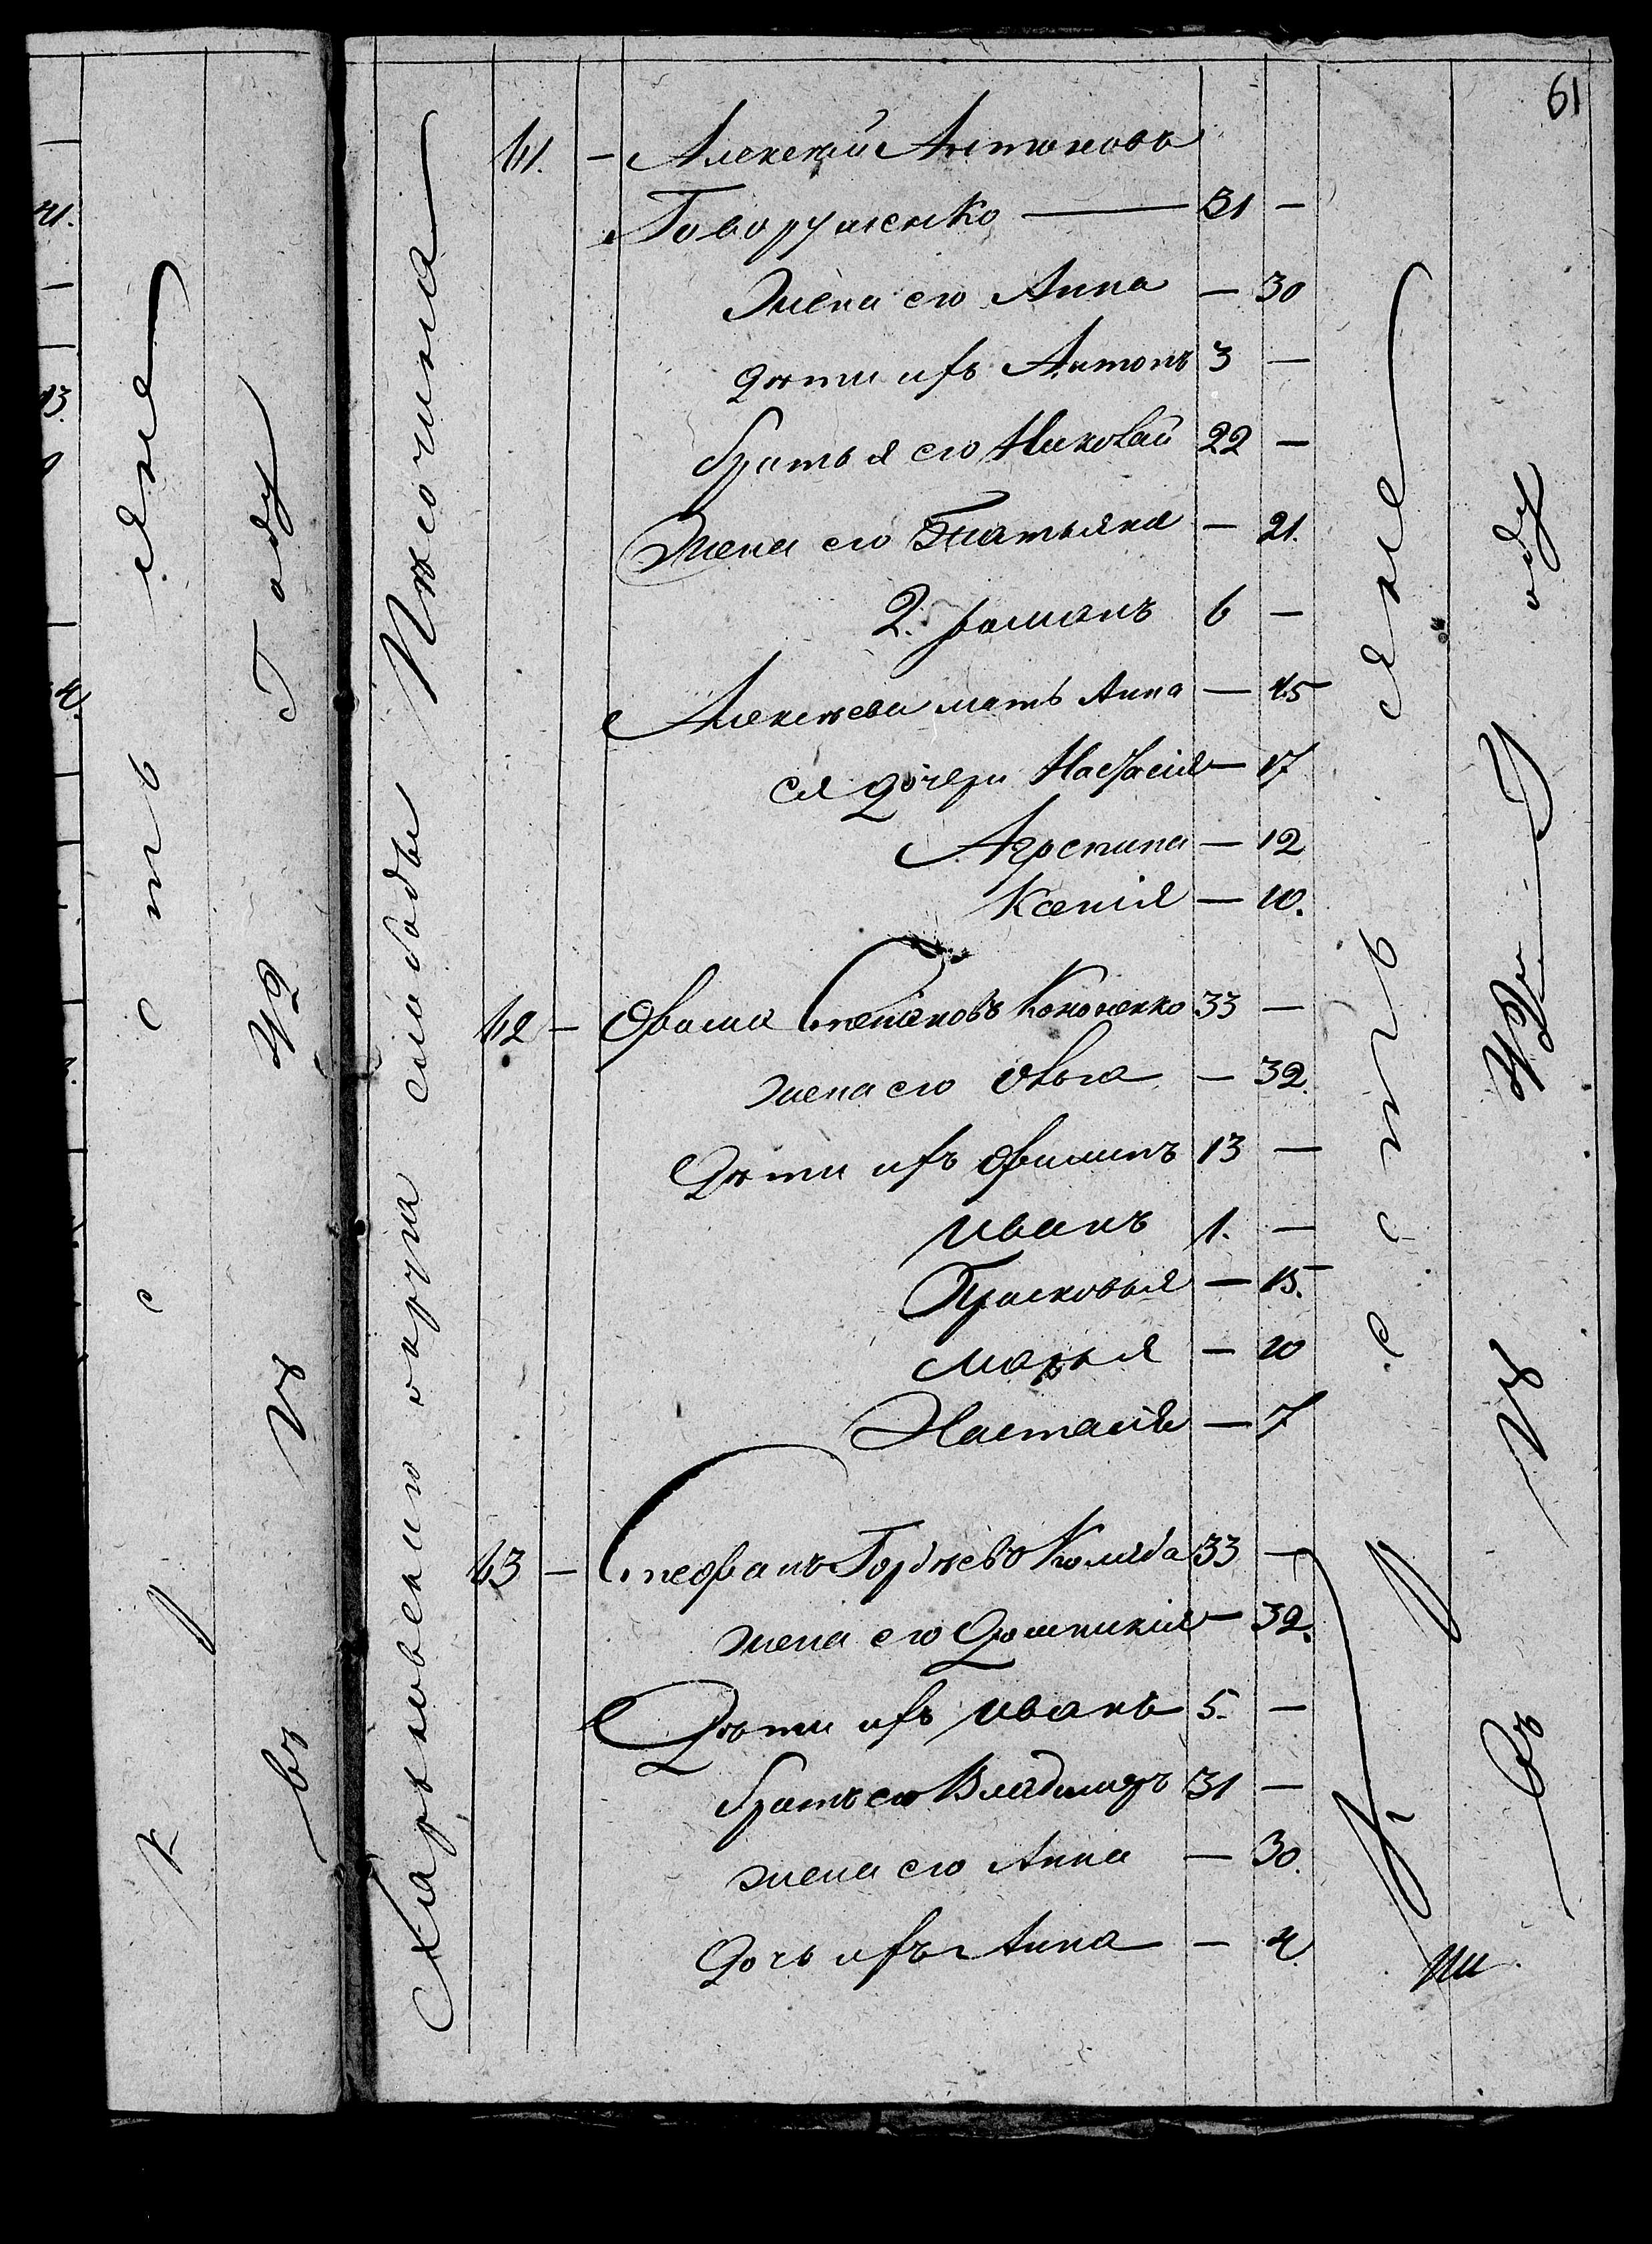 61
Харьковскаго округа слободы Пѣсочина
61. – Алексѣй Антоновъ
Говоруженко — 31 –
Жена его Анна – 30
Дѣти ихъ Антонъ 3 –
Братья его Николай 22 –
Жена его Татьяна – 21.
2. Романъ 6 –
Алексѣева мать Анна – 45
Ея дочери Настасія – 17
Агрепина – 12
Ксенія – 10.
62 – Фома Степановъ Кононенко 33 –
жена его Ольга – 32.
Дѣти ихъ Филипъ 13 –
Иванъ 1. –
Прасковья – 15.
Марья – 10
Настасія – 7
63 – Стефанъ Гордѣевъ Коляда 33 –
жена его Домникія – 32.
Дѣти ихъ Иванъ 5. –
Братъ его Владимиръ 31 –
жена его Анна – 30.
Дочь ихъ Анна – 4.
Крестьяне
въ
Году